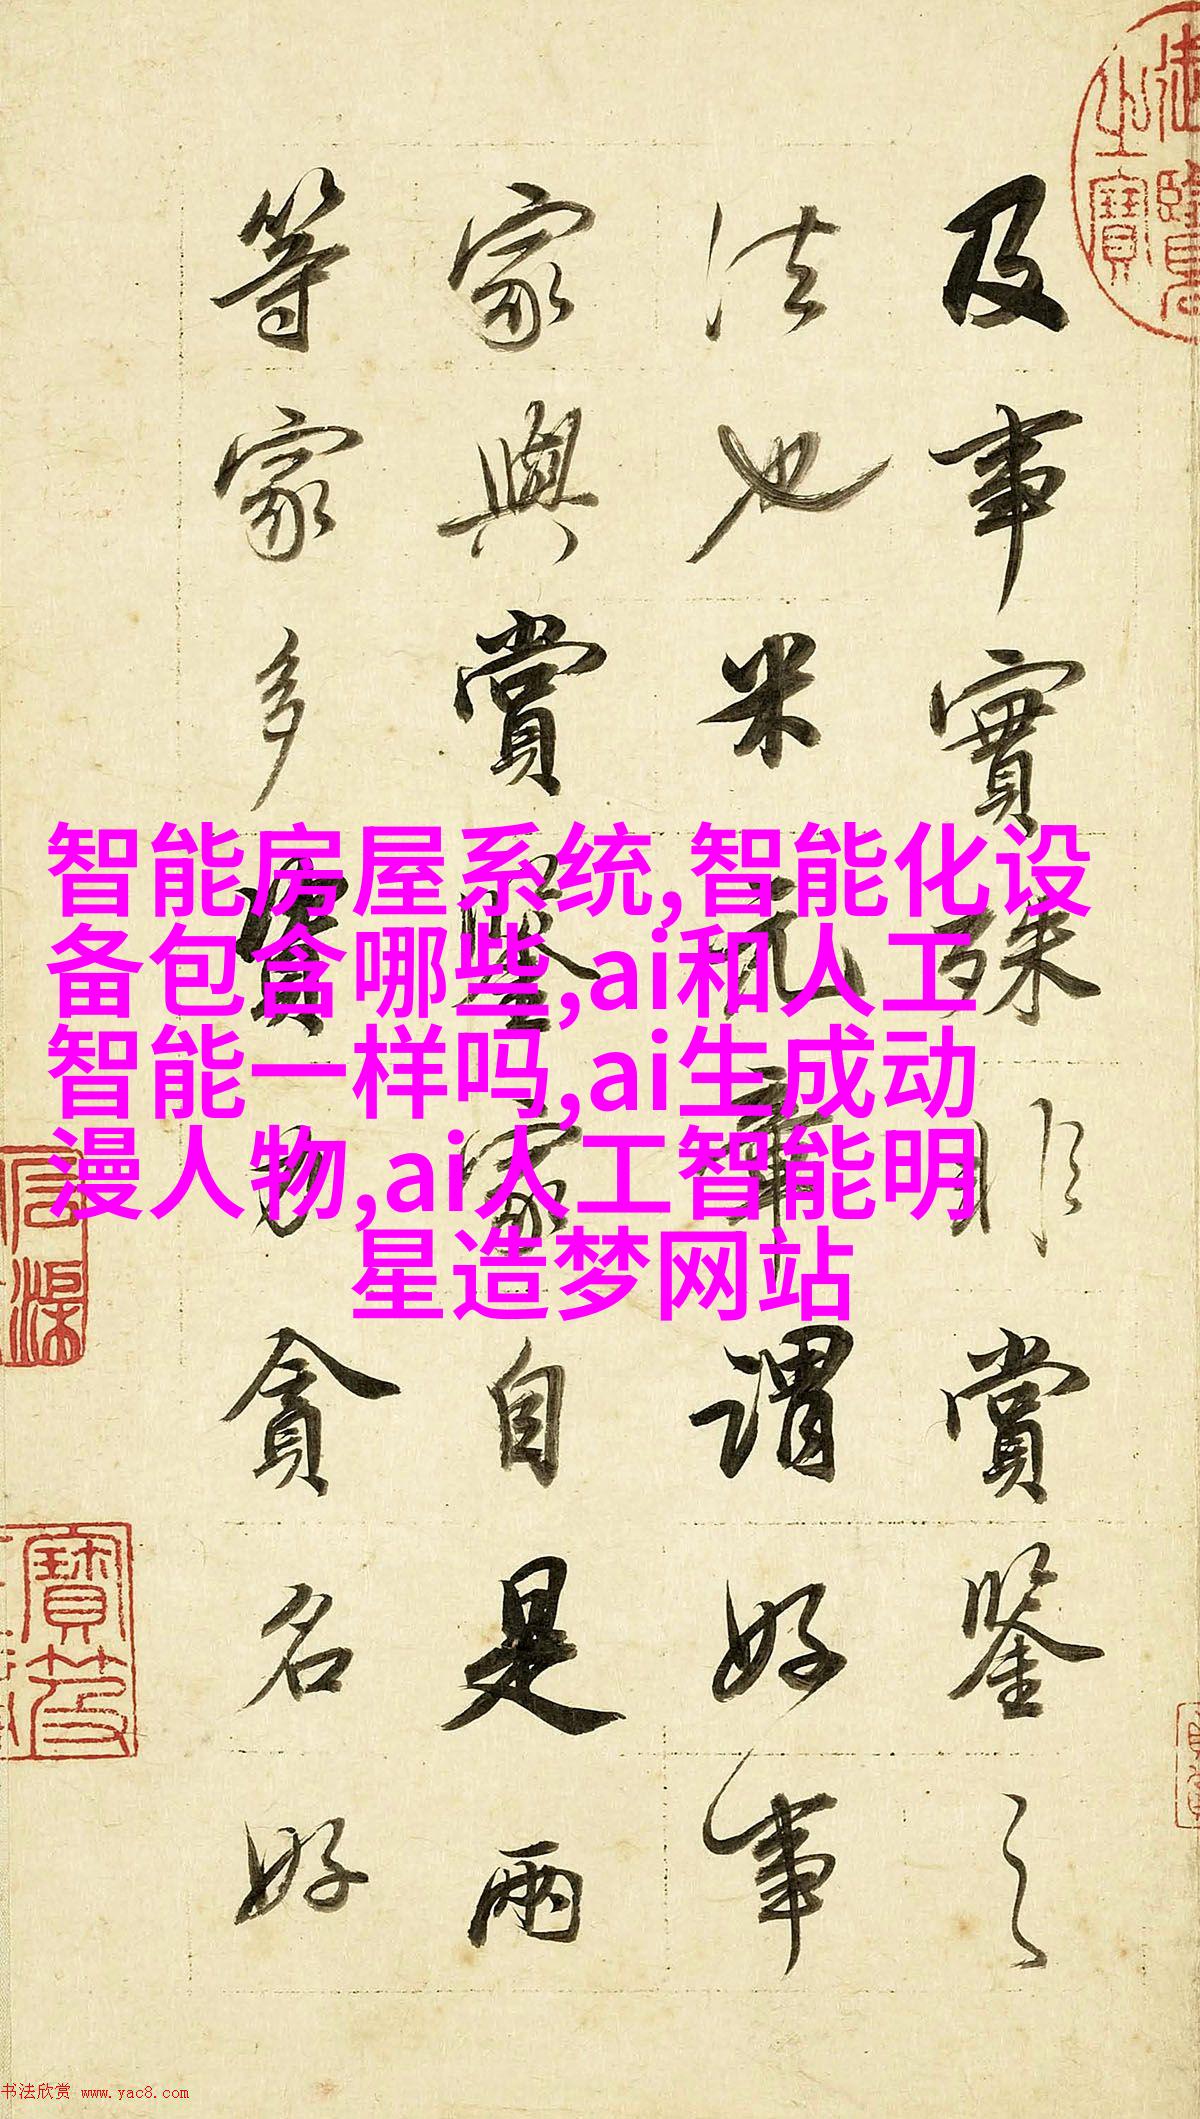 及事實殊非賞鑒之
法也米元章謂好事
家與賞鑒家自是兩
等家多資力貪名好
智能房屋系统,智能化设
备包含哪些,ai和人工
智能一样吗,ai生成动
漫人物,ai人工智能明
星造梦网站
书法欣赏 www.yac8.com